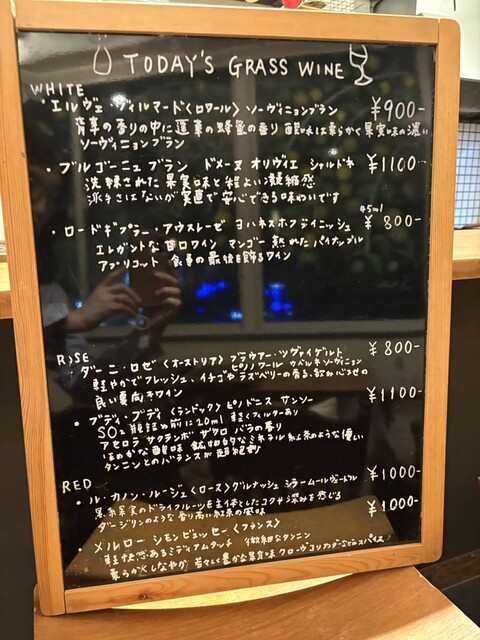 TODAY'S GRASS WINE
WHITE
・エルヴェ・ヴィルマード〈ロワール〉 ソーヴィニョンブラン ¥900-
青草の香りの中に の蜂蜜の香り 酸味は柔らかく果実味の濃い
ソーヴィニョンブラン
・ブルゴーニュブラン ドメーヌ オリヴィエ シャルドネ ¥1100-
洗練された果実味と程よい凝縮感
派手さはないが実直で安心できる味わいです
45ml
・ロードギプラー・アウスレーゼ ヨハネスホフライニッシュ ¥800-
エレガントな甘口ワイン マンゴー 熟れたパイナップル
アプリコット 食事の最後を飾るワイン
ROSE
ダーニ・ロゼ〈オーストリア〉ブラウアー・ツヴァイゲルト ¥800-
ピノノワール カベルネソーヴィニヨン
軽やかでフレッシュ、イチゴやラズベリーの香る、飲み心地の
良い夏向きワイン
・ブディ・ブディ〈ラングドック〉ピノドニス サンソー ¥1100
SO₂ 瓶詰め前に20ml 軽くフィルターあり
アセロラ サクランボ ザクロ バラの香り
ほのかな酸味 鉱物的なミネラル 紅茶のような優しい
タンニンとのバランスが
RED
・ル・カノン・ルージュ〈ローヌ〉グルナッシュ シラー ムールヴェードル ¥1000-
黒系果実のドライフルーツを主体としたコクや深みを感じる
ダージリンのような香り高い紅茶の風味
・メルロー シモン ビュッセー〈フランス〉 ¥1000-
軽快感あるミディアムタッチ 微細なタンニン
柔らかくしなやか 若々しく豊かな果実味 クローヴ コリアンダーなどのスパイス